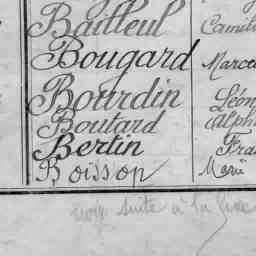 Bailleul Camil
Bougard Marce
Bourdin Léon
Boutard Alph
Bertin Fra
Boisson Marie
voir suite à la fin